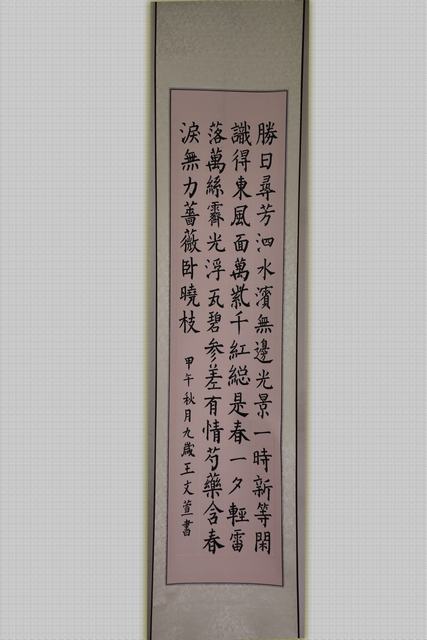 勝日尋芳泗水濱無邊光景一時新等閑
識得東風面萬紫千紅総是春一夕輕雷
落萬絲霽光浮瓦碧参差有情芍藥含春
淚無力薔薇卧曉枝 甲午秋月九歲王文萱書